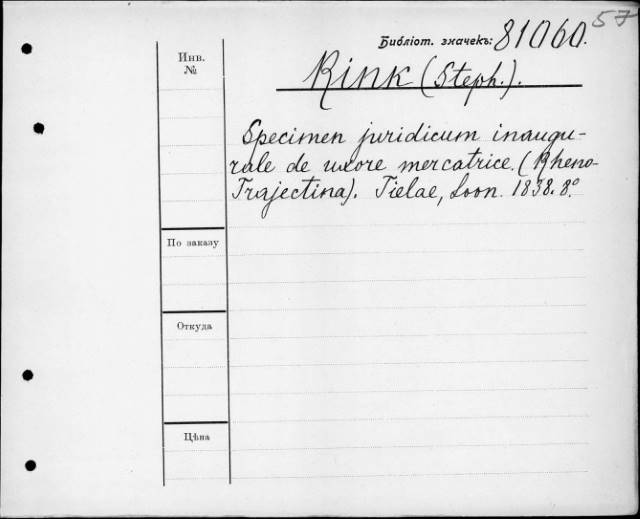 57
Библіот. значекъ: 81060.
Инв.
№
Rink (Steph.).
Specimen juridicum inaugu-
rale de uxore mercatrice. (Rheno-
Trajectina). Tielae, Loon. 1838. 8º
По заказу
Откуда
Цѣна